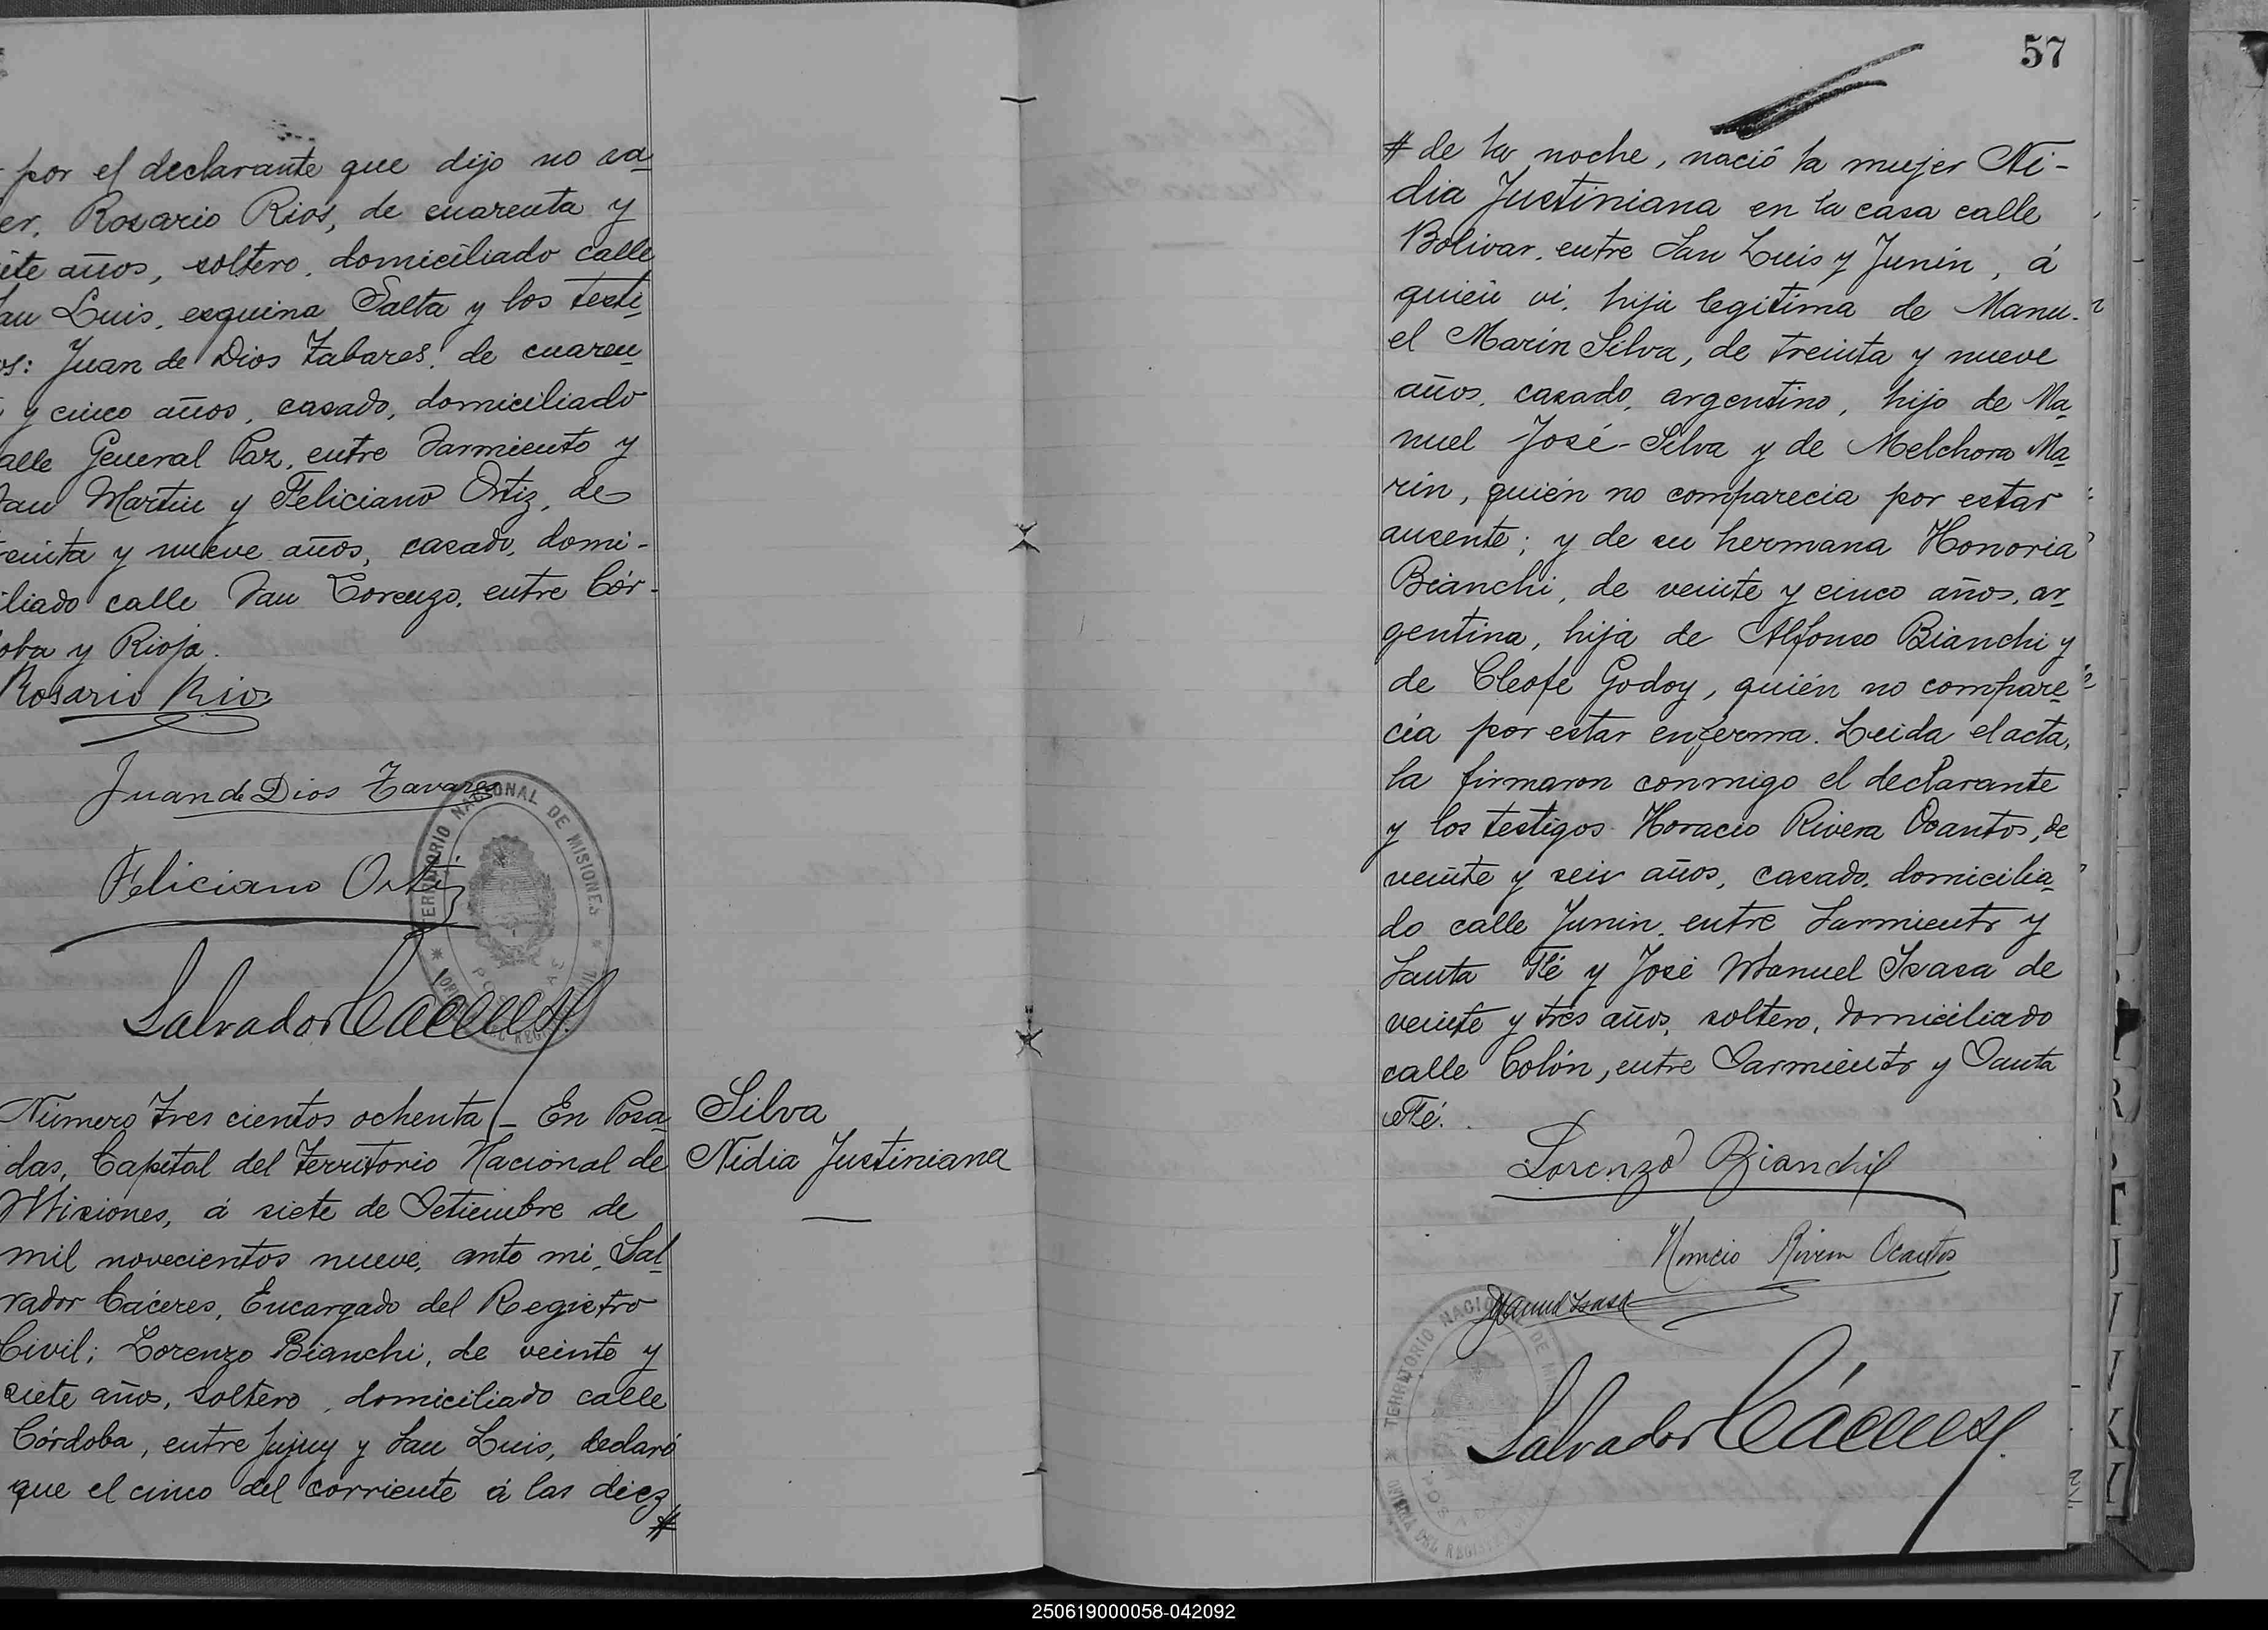 por el declarante que dijo no sa
er. Rosario Rios, de cuarenta y
iete años, soltero, domiciliado calle
an Luis, esquina Salta y los testi
os: Juan de Dios Tabares, de cuaren
y cinco años, casado, domiciliado
alle General Paz, entre Sarmiento y
San Martin y Feliciano Ortiz, de
reinta y nueve años, casado, domi-
iliado calle San Lorenzo, entre Cór-
oba y Rioja.
Rosario Rios
Juan de Dios Tavares
Feliciano Ortiz
TERRITORIO NACIONAL DE MISIONES
Salvador Cáceres
Número tres cientos ochenta - En Posa
das, Capital del Territorio Nacional de
Misiones, á siete de Setiembre de
mil novecientos nueve, ante mi, Sal
vador Cáceres, Encargado del Registro
Civil; Lorenzo Bianchi, de veinte y
siete años, soltero, domiciliado calle
Córdoba, entre Jujuy y San Luis, declaró
que el cinco del corriente á las diez
#
Silva
Nidia Justiniana
57
# de la noche, nació la mujer Ni-
dia Justiniana en la casa calle
Bolivar, entre San Luis y Junin, á
quién vi, hija legitima de Manu-
el Marin Silva, de treinta y nueve
años, casado, argentino, hijo de Ma
nuel José Silva y de Melchora Ma
rin, quién no comparecia por estar
ausente; y de su hermana Honoria
Bianchi, de veinte y cinco años, ar
gentina, hija de Alfonso Bianchi y
de Cleofe Godoy, quién no compare
cia por estar enferma. Leida el acta,
la firmaron conmigo el declarante
y los testigos Horacio Rivera Ocantos, de
veinte y seis años, casado, domicilia
do calle Junin, entre Sarmiento y
Santa Fé y José Manuel Isasa de
veinte y tres años, soltero, domiciliado
calle Colón, entre Sarmiento y Santa
Fé.
Lorenzo Bianchi
Horacio Rivera Ocantos
JManuel Isasa
TERRITORIO NACIONAL DE
POSADAS
OFICINA DEL REGISTRO
Salvador Cáceres
R
T
J
J
K
250619000058-042092